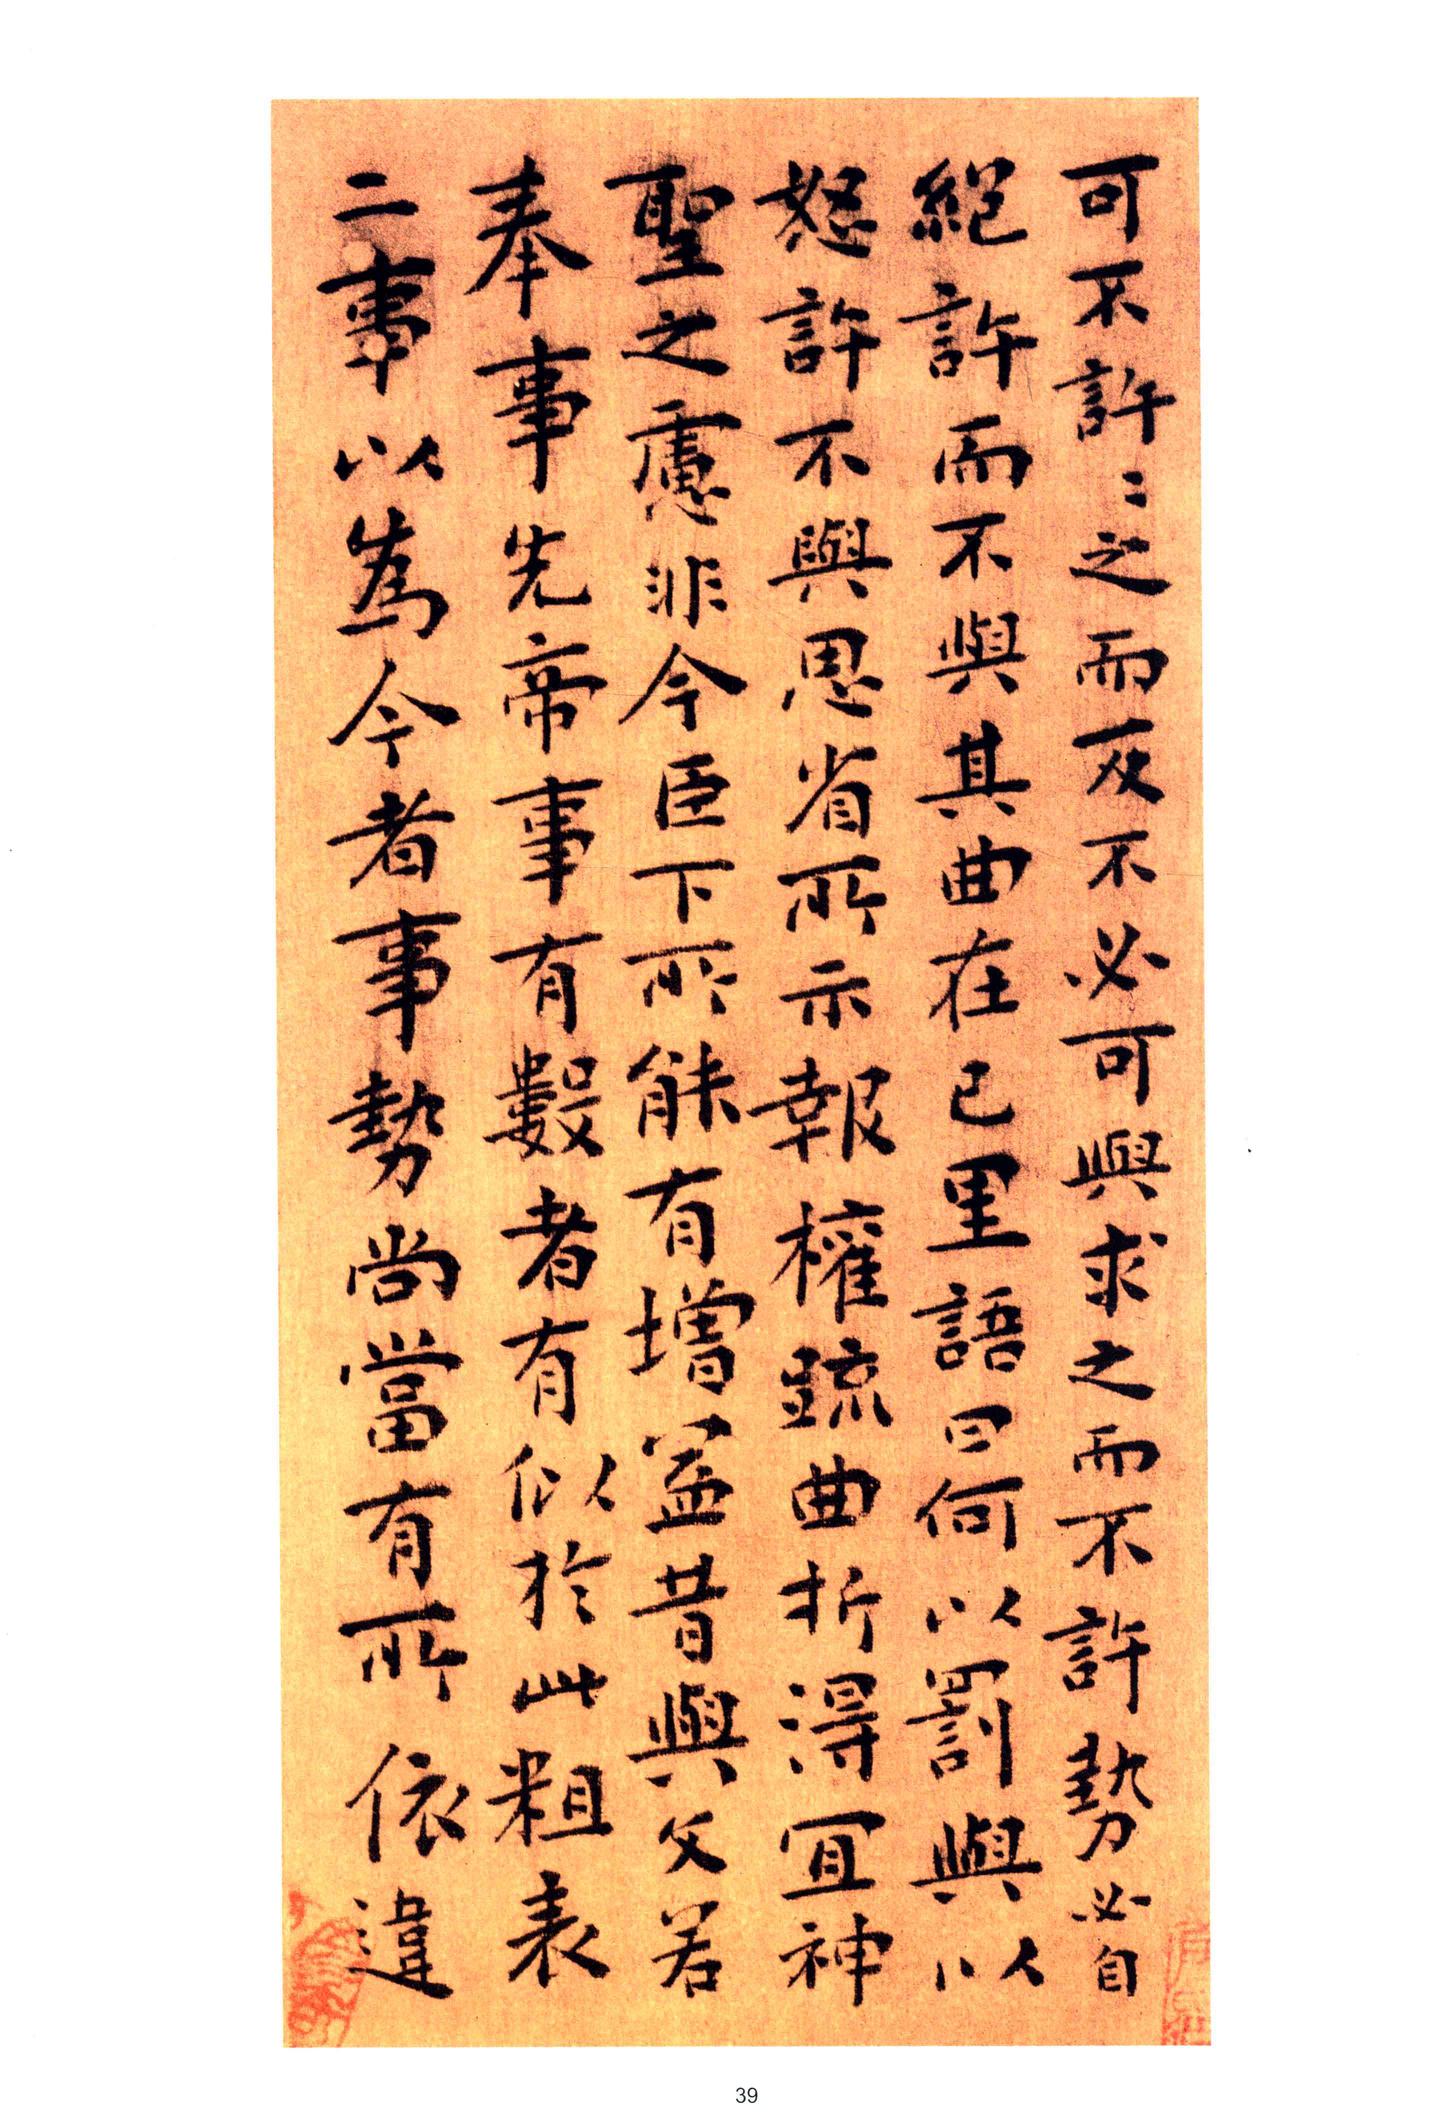 可不許〻之而反不必可與求之而不許勢必自
絕許而不與其曲在己里語曰何以罰與以
怒許不與思省所示報權疏曲折得宜神
聖之慮非今臣下所能有增益昔與文若
奉事先帝事有數者有似於此粗表
二事以為今者事勢尚當有所依違
39